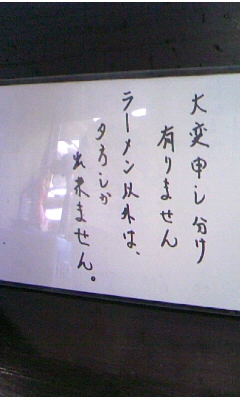 大変申し分け
有りません
ラーメン以外は、
夕方しか
出来ません。